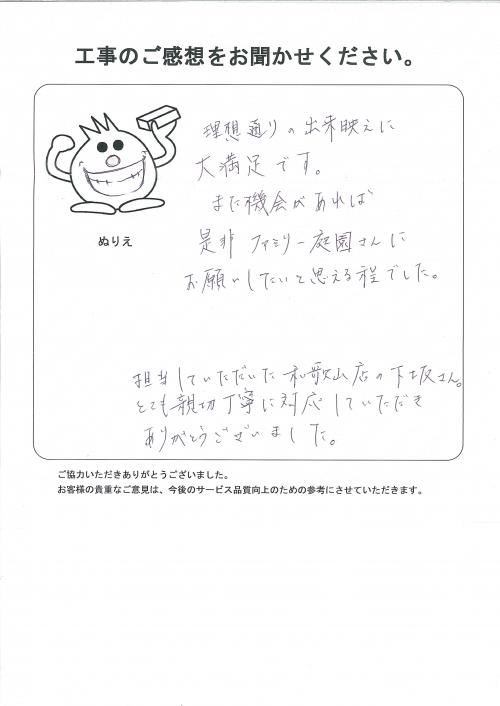 工事のご感想をお聞かせください。
ぬりえ
理想通りの出来映えに
大満足です。
また機会があれば
是非 ファミリー庭園さんに
お願いしたいと思える程でした。
担当していただいた和歌山店の下坂さん。
とても親切丁寧に対応していただき
ありがとうございました。
ご協力いただきありがとうございました。
お客様の貴重なご意見は、今後のサービス品質向上のための参考にさせていただきます。